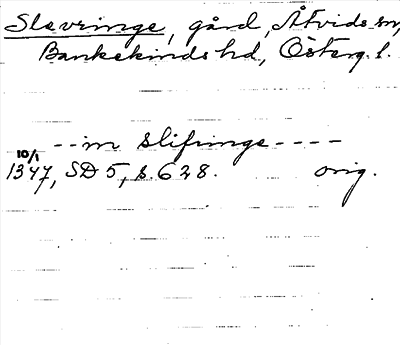 Slevringe, gård, Åtvids sn,
Bankekinds hd, Österg. l.
- - in Slifringe - - - -
10/1
1347, SD 5, s. 628. orig.